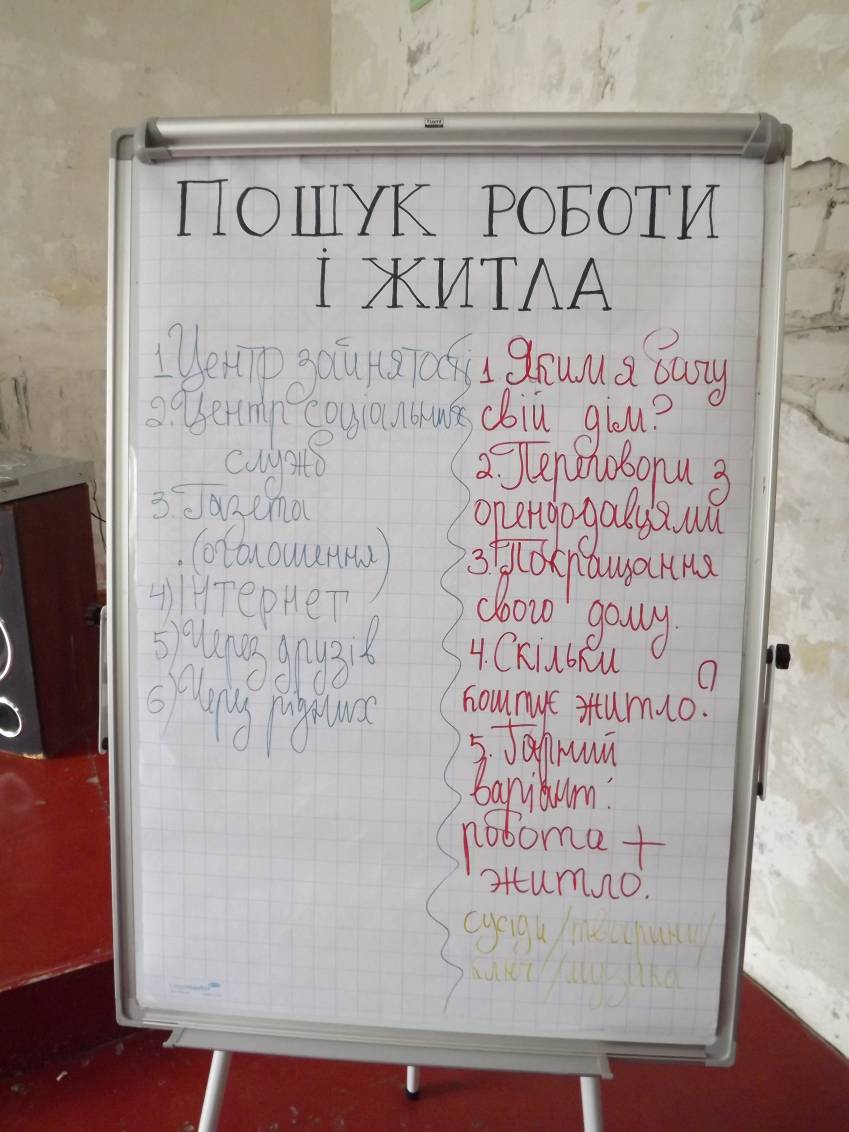 ПОШУК РОБОТИ
І ЖИТЛА
1 Центр зайнятості
2. Центр соціальних
служб
3. Газета
. (оголошення)
4) Інтернет
5) Через друзів
6) Через рідних
1 Яким я бачу
свій дім?
2. Переговори з
орендодавцями
3. Покращання
свого дому.
4. Скільки
коштує житло?
5. Гарний
варіант:
робота +
житло.
сусіди/тварини/
ключ/музика